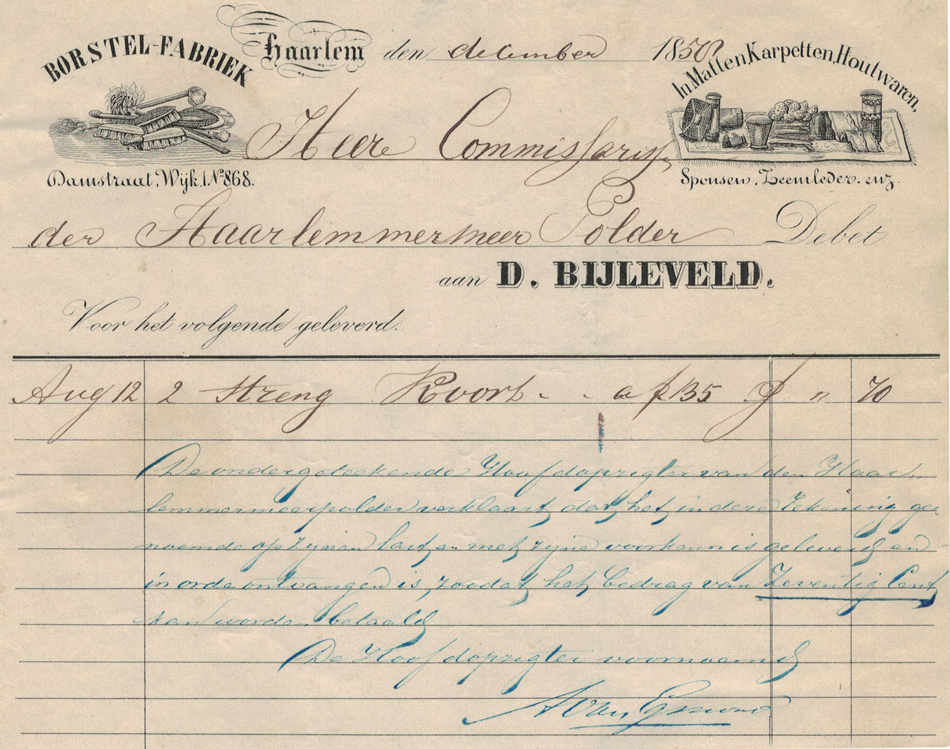 BORSTEL-FABRIEK
Haarlem den december 1850
In Matten Karpetten, Houtwaren,
Damstraat, Wijk 1 No 868.
Sponsen, Zeemleder. enz.
Heere Commissaris
der Haarlemmermeer Polder Debet
aan D. BIJLEVELD.
Voor het volgende geleverd.
Aug 12 2 Streng Koort - - a f 35 f " 70
De ondergeteekende Hoofdopzigter van den Haar
lemmermeerpolder verklaart, dat het in deze rekening ge-
noemde op zynen last en met zyne voorkennis geleverd en
in orde ontvangen is, zoodat het bedrag van Zeventig Cent
kan worden betaald
De Hoofdopzigter voornoemd
A van Egmond